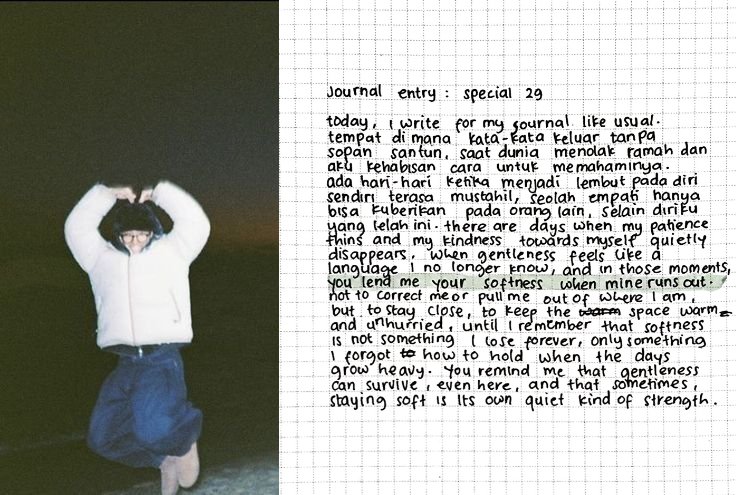 Journal entry : special 29
today, I write for my journal like usual.
tempat di mana kata-kata keluar tanpa
sopan santun, saat dunia menolak ramah dan
aku kehabisan cara untuk memahaminya.
ada hari-hari ketika menjadi lembut pada diri
sendiri terasa mustahil, seolah empati hanya
bisa kuberikan pada orang lain, selain diriku
yang lelah ini. there are days when my patience
thins and my kindness towards myself quietly
disappears. when gentleness feels like a
language I no longer know, and in those moments,
you lend me your softness when mine runs out.
not to correct me or pull me out of where I am,
but to stay close, to keep the warm space warm
and unhurried, until I remember that softness
is not something I lose forever, only something
I forgot to how to hold when the days
grow heavy. you remind me that gentleness
can survive, even here, and that sometimes,
staying soft is its own quiet kind of strength.